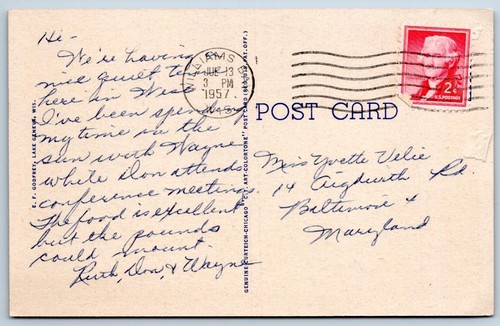 Hi-
We're having a
nice quiet time
here in Wisc.
I've been spending
my time in the
sun with Wayne
while Don attends
conference meetings.
The food is excellent
but the pounds
could mount.
Ruth, Don, & Wayne
E. F. GODFREY, LAKE GENEVA, WIS.
GENUINE CURTEICH-CHICAGO "C.T. ART-COLORTONE" POST CARD (REG. U.S. PAT. OFF.)
WILLIAMS BAY
JUN 13
3 PM
1957
WIS.
2¢
U.S. POSTAGE
POST CARD
Miss Yvette Velie
14 Aigburth Rd.
Baltimore 4
Maryland